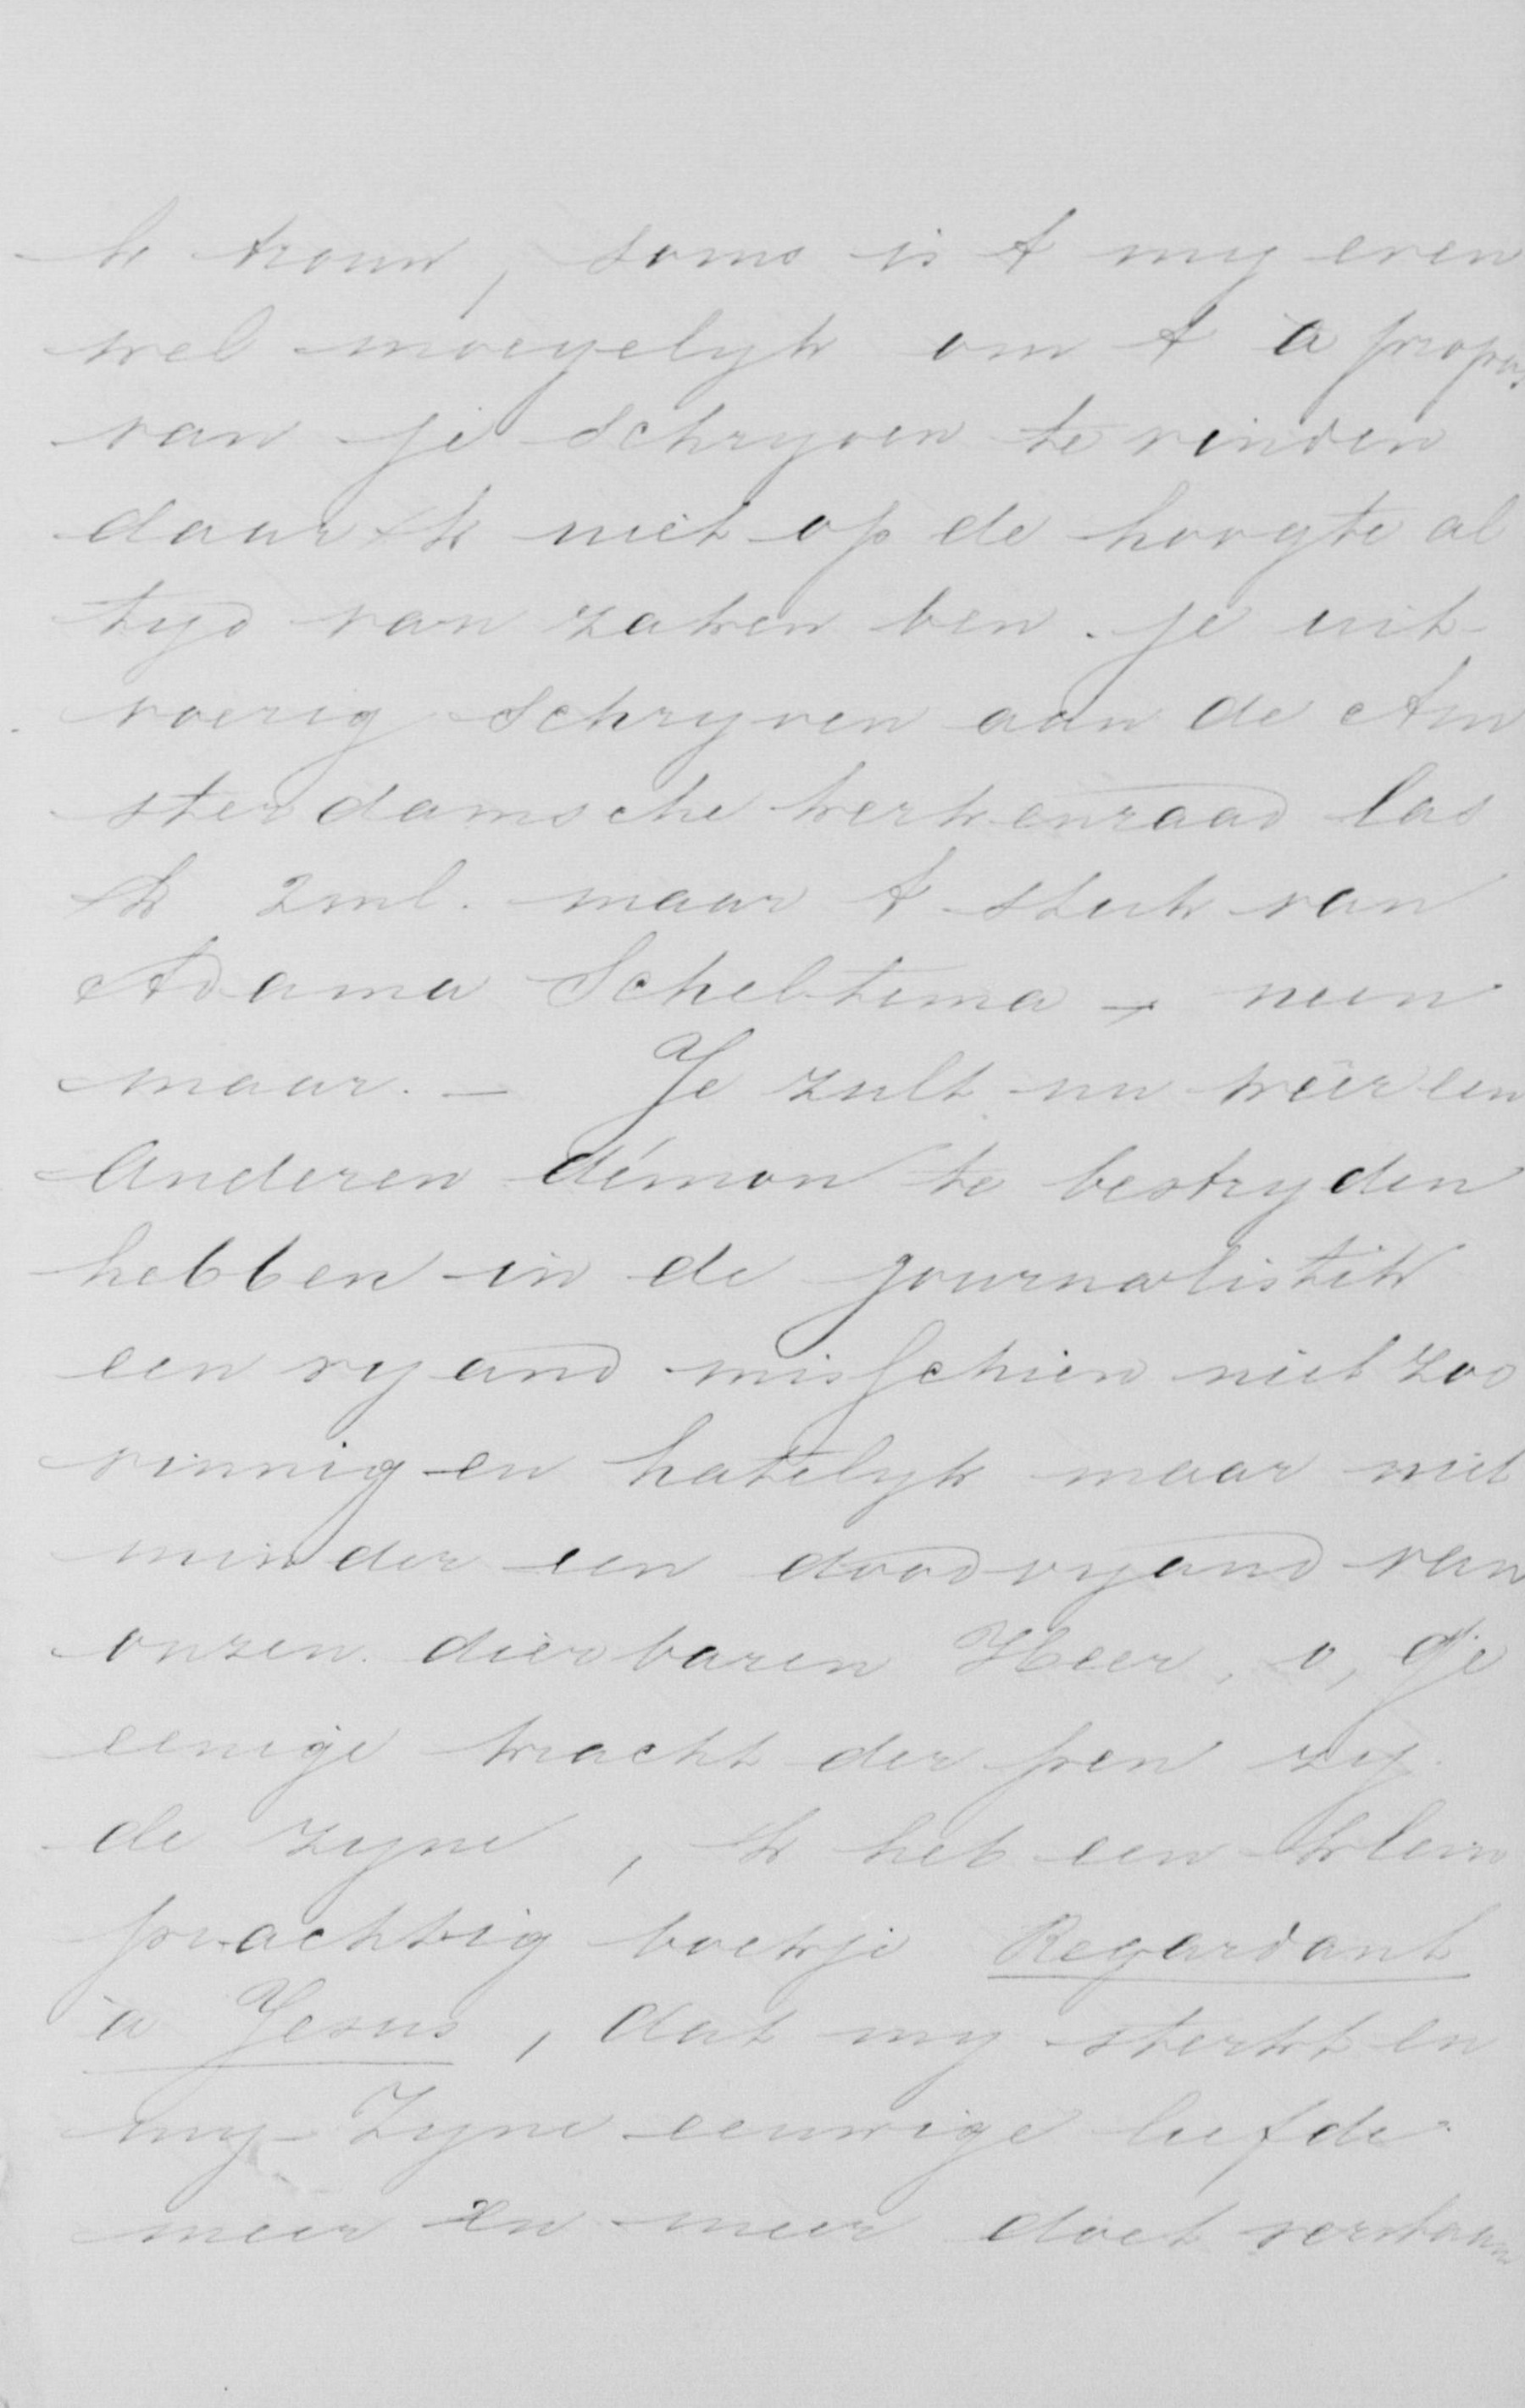 ik trouw, soms is 't my even
wel moeyelyk om 't à propos
van je schryven te vinden
daar ik niet op de hoogte al
tyd van zaken ben. je uit-
voerig schryven aan de Am
sterdamsche kerkenraad las
ik 2ml. maar 't stuk van
Adama Scheltema - neen
maar. - Je zult nu wêer een
Anderen démon te bestryden
hebben in de journalistik
een vyand misschien niet zoo
vinnig en hatelyk maar niet
minder een doodvyand van
onzen dierbaren Heer, o, Gje
eenige kracht der pen zy
de zyne, ik heb een klein
prachtig boekje Regardant
à Jesus, dat my sterkt en
my Zyne eeuwige liefde
meer en meer doet verstaan